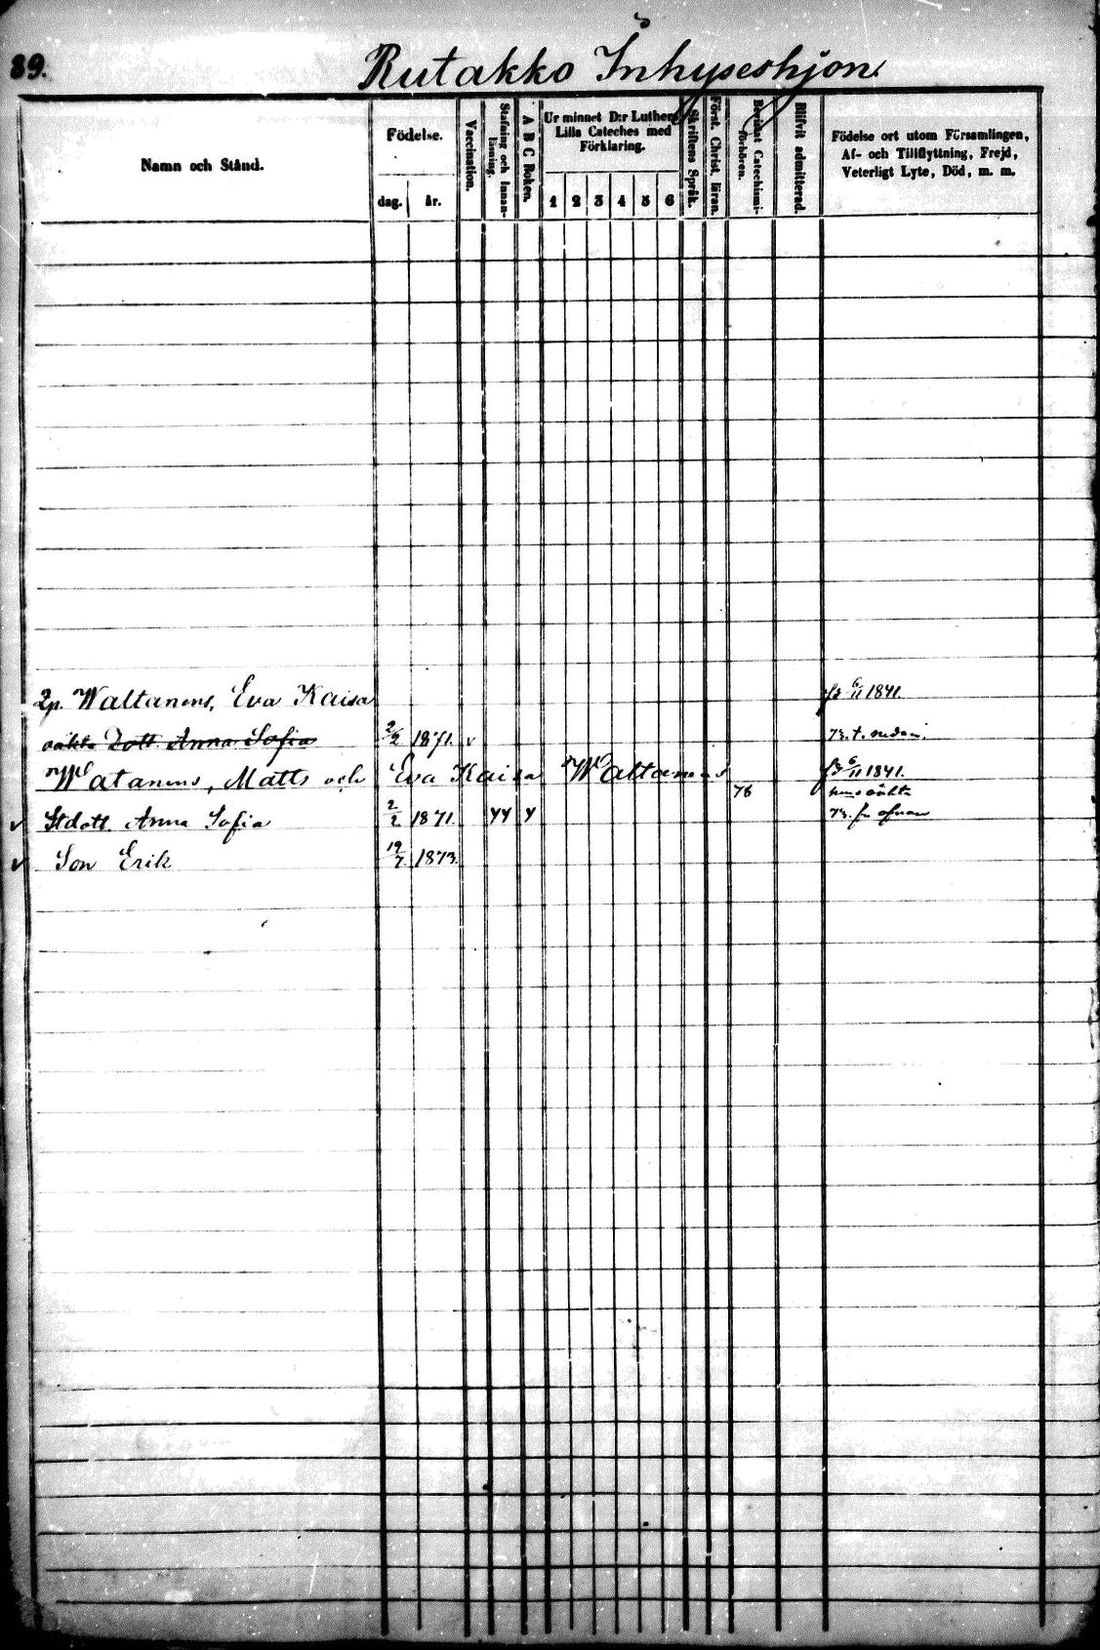 89.
Rutakko Inhyseshjon
Namn och Stånd.
Födelse.
dag.
år.
Vaccination.
Stafning och Innan-
läsning.
A B C Boken.
Ur minnet D:r Luthers
Lilla Cateches med
Förklaring.
1 2 3 4 5 6
Skriftens Språk.
Först. Christ. läran.
Bevistat Catechismi-
förhören.
Blifvit admitterad.
Födelse ort utom Församlingen,
Af- och Tillflyttning, Frejd,
Veterligt Lyte, Död, m. m.
Waltanens, Eva Kaisa 6/11 1841.
oäkta Dott. Anna Sofia 2/2 1871. v
Watanens, Matts och Eva Kaisa Waltanens 6/11 1841.
76 oäkta
v Stdott. Anna Sofia 2/2 1871. YY Y
v Son Erik 19/7 1873.